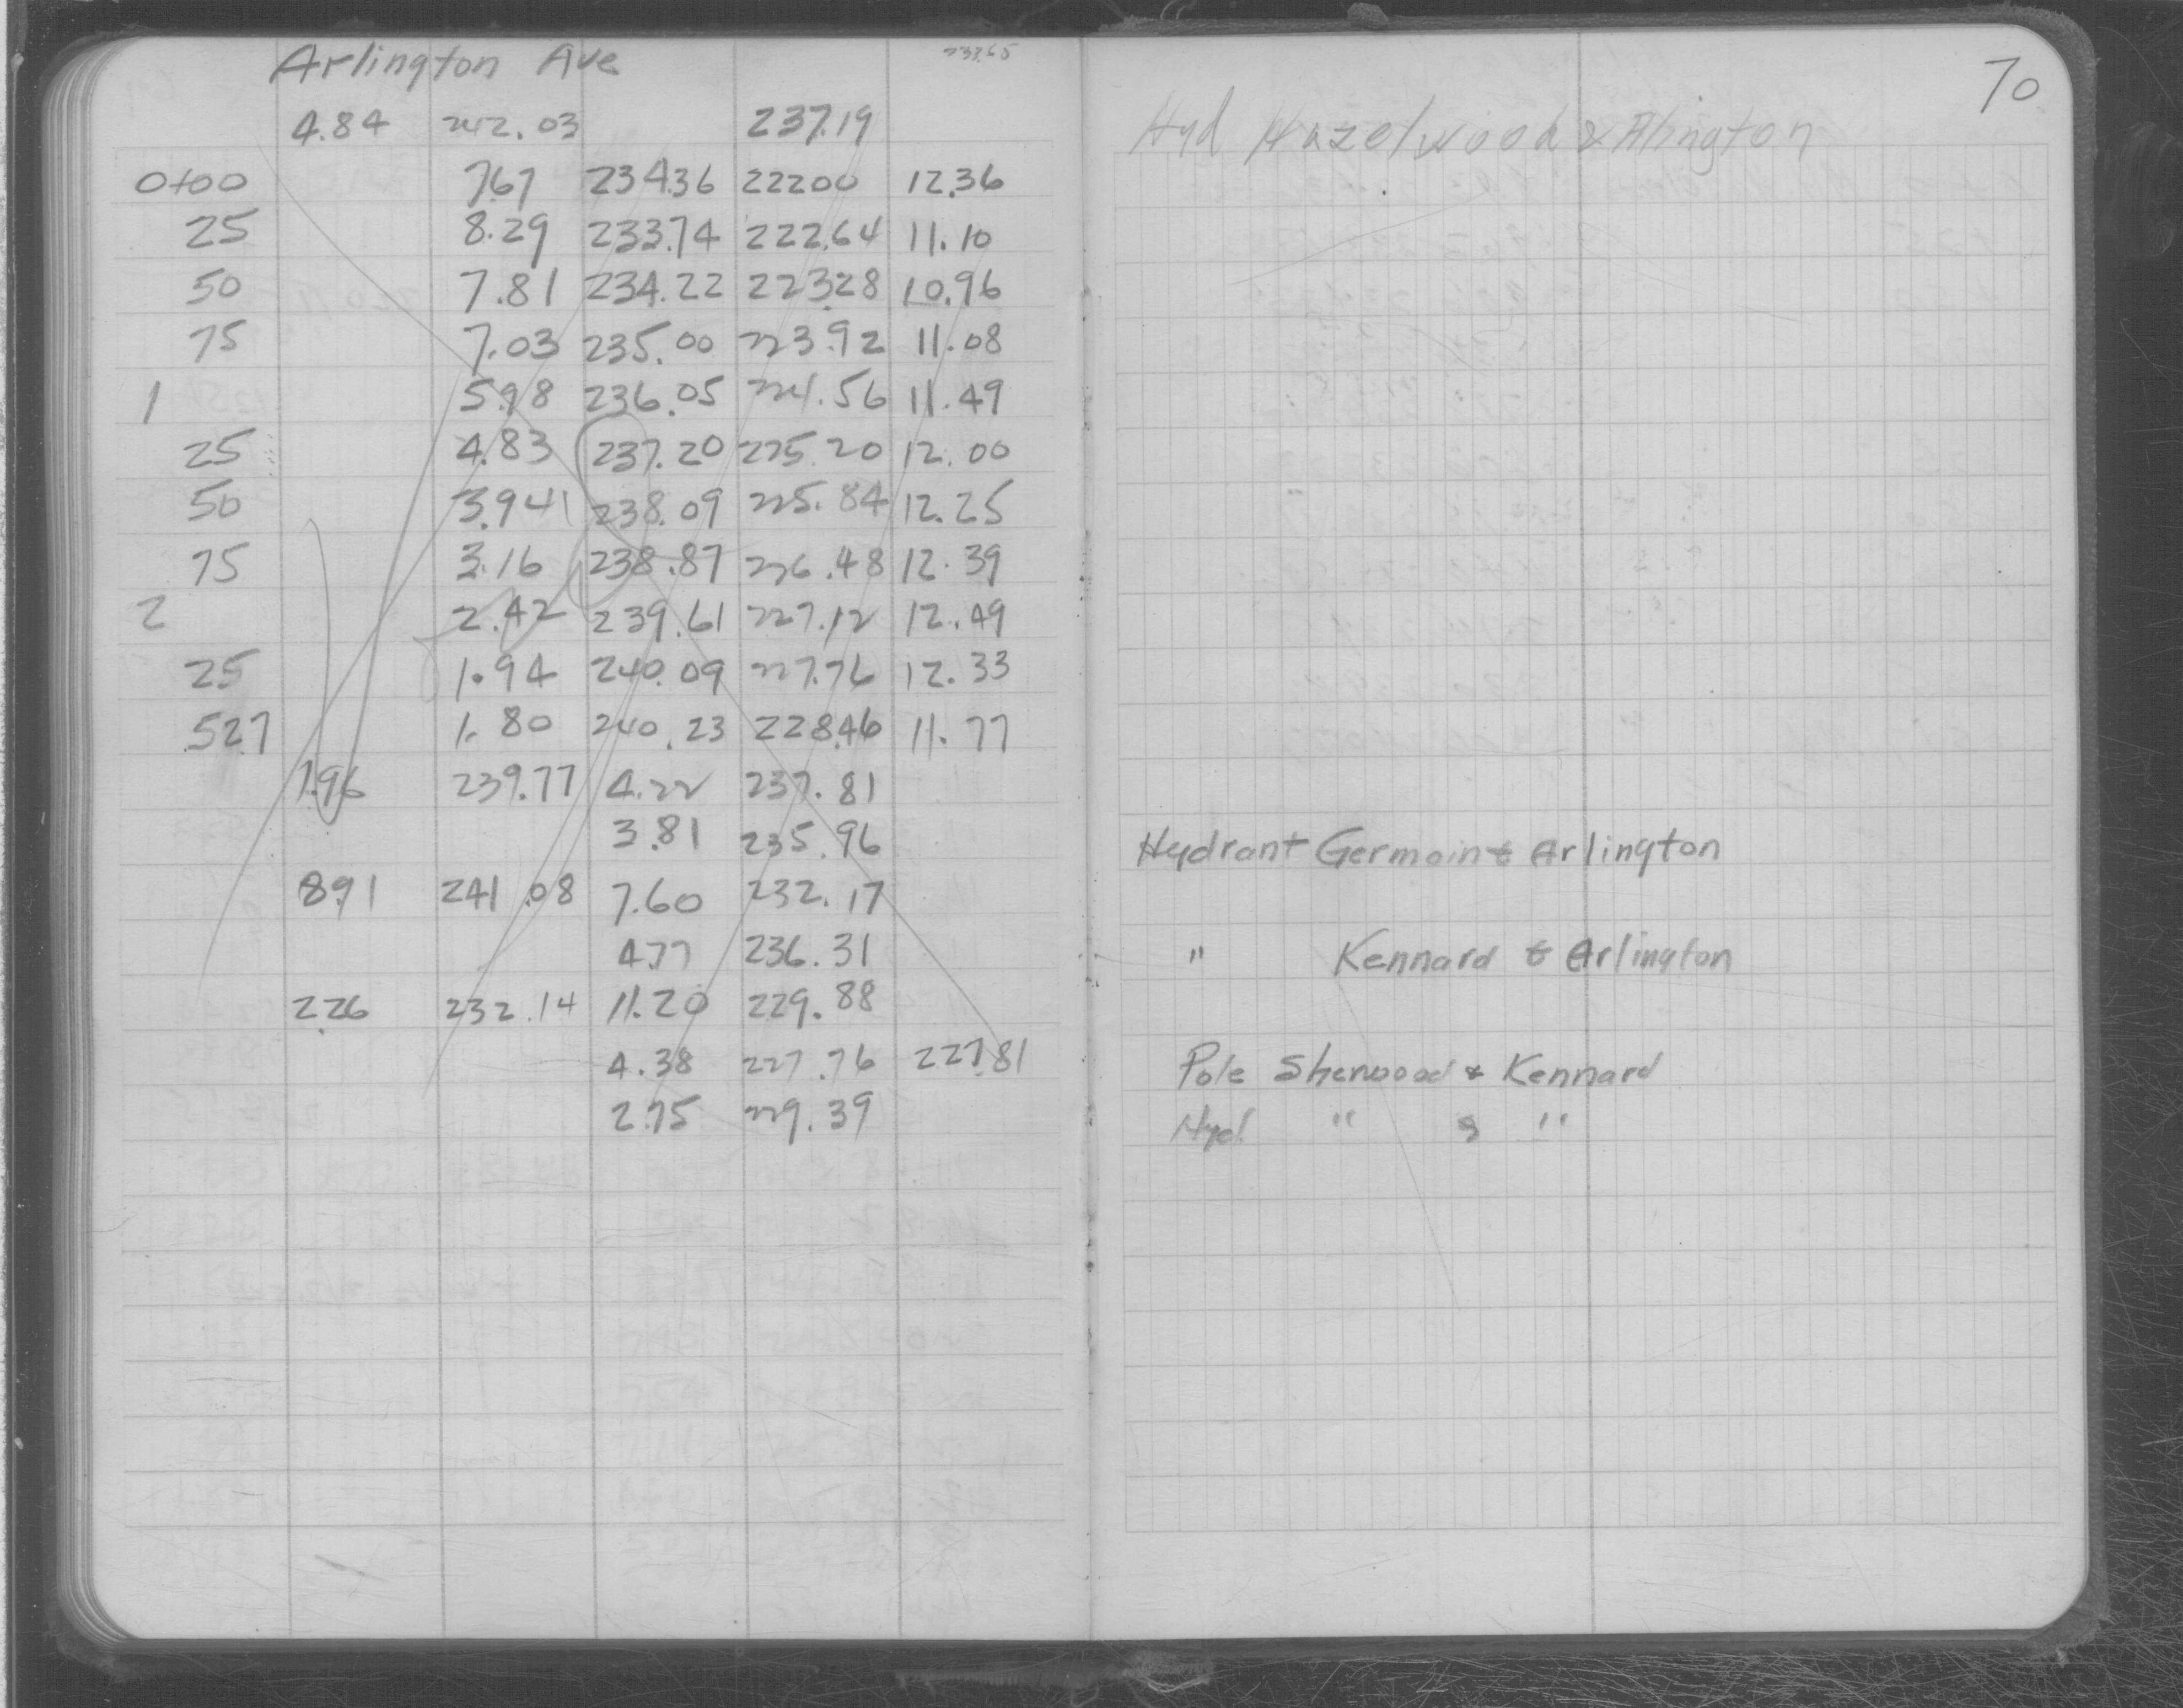 Arlington Ave 233.65
4.84 242.03 237.19
0+00 7.67 234.36 222.00 12.36
25 8.29 233.74 222.64 11.10
50 7.81 234.22 223.28 10.96
75 7.03 235.00 223.92 11.08
1 5.98 236.05 224.56 11.49
25 4.83 237.20 225.20 12.00
50 3.94 238.09 225.84 12.25
75 3.16 238.87 226.48 12.39
2 2.42 239.61 227.12 12.49
25 1.94 240.09 227.76 12.33
52.7 1.80 240.23 228.46 11.77
1.96 239.77 4.22 237.81
3.81 235.96
8.91 241.08 7.60 232.17
4.77 236.31
2.26 232.14 11.20 229.88
4.38 227.76 227.81
2.75 229.39
70
Hyd Hazelwood & Alington
Hydrant Germain & Arlington
" Kennard & Arlington
Pole Sherwood & Kennard
Hyd " & "